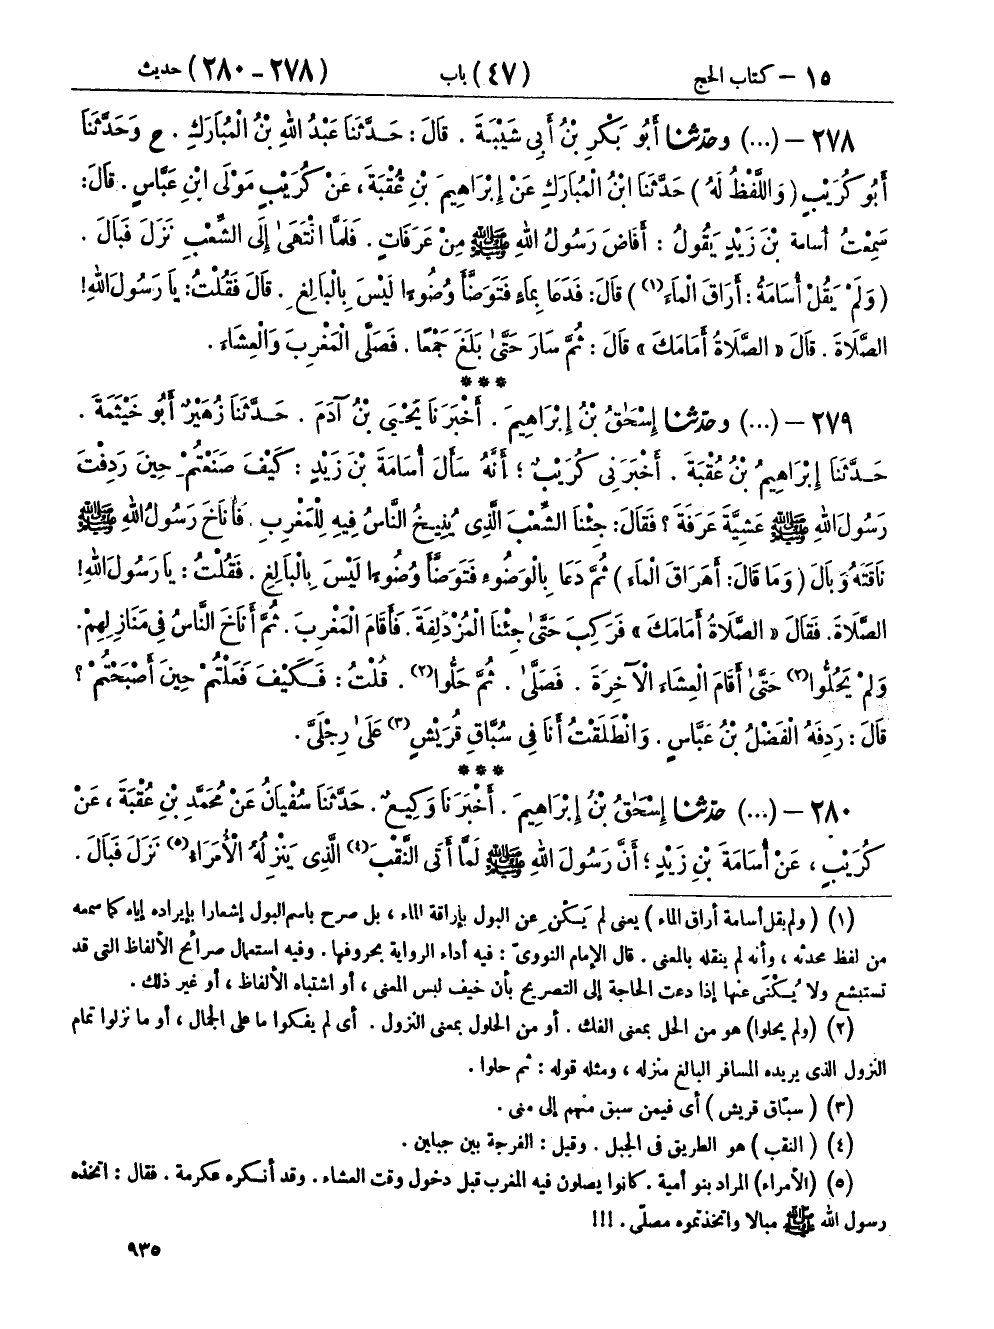 ١٥ – كتاب الحج (٤٧) باب (٢٧٨ – ٢٨٠) حديث
٢٧٨ – (...) وحدّثنا أَبُو بَكْرِ بْنُ أَبِي شَيْبَةَ . قَالَ : حَدَّثَنَا عَبْدُ اللهِ بْنُ الْمُبَارَكِ . ع وَحَدَّثَنَا
أَبُو كُرَيْبٍ ( وَاللَّفْظُ لَهُ ) حَدَّثَنَا ابْنُ الْمُبَارَكِ عَنْ إِبْرَاهِيمَ بْنِ عُقْبَةَ ، عَنْ كُرَيْبٍ مَوْلَى ابْنِ عَبَّاسٍ . قَالَ :
سَمِعْتُ أُسَامَةَ بْنَ زَيْدٍ يَقُولُ : أَفَاضَ رَسُولُ اللهِ ﷺ مِنْ عَرَفَاتٍ . فَلَمَّا انْتَهَىٰ إِلَى الشِّعْبِ نَزَلَ فَبَالَ .
( وَلَمْ يَقُلْ أُسَامَةُ : أَرَاقَ الْمَاءَ(١) ) قَالَ : فَدَعَا بِمَاءٍ فَتَوَضَّأَ وُضُوءًا لَيْسَ بِالْبَالِغِ . قَالَ فَقُلْتُ : يَا رَسُولَ اللهِ !
الصَّلَاةَ . قَالَ « الصَّلَاةُ أَمَامَكَ » قَالَ : ثُمَّ سَارَ حَتَّىٰ بَلَغَ جَمْعًا . فَصَلَّى الْمَغْرِبَ وَالْعِشَاءَ .
***
٢٧٩ – (...) وحدّثنا إِسْحَٰقُ بْنُ إِبْرَاهِيمَ . أَخْبَرَنَا يَحْيَى بْنُ آدَمَ . حَدَّثَنَا زُهَيْرٌ أَبُو خَيْثَمَةَ .
حَدَّثَنَا إِبْرَاهِيمُ بْنُ عُقْبَةَ . أَخْبَرَنِي كُرَيْبٌ ؛ أَنَّهُ سَأَلَ أُسَامَةَ بْنَ زَيْدٍ : كَيْفَ صَنَعْتُمْ حِينَ رَدِفْتَ
رَسُولَ اللهِ ﷺ عَشِيَّةَ عَرَفَةَ ؟ فَقَالَ : جِئْنَا الشِّعْبَ الَّذِي يُنِيخُ النَّاسُ فِيهِ لِلْمَغْرِبِ . فَأَنَاخَ رَسُولُ اللهِ ﷺ
نَاقَتَهُ وَبَالَ ( وَمَا قَالَ : أَهَرَاقَ الْمَاءَ ) ثُمَّ دَعَا بِالْوَضُوءِ فَتَوَضَّأَ وُضُوءًا لَيْسَ بِالْبَالِغِ . فَقُلْتُ : يَا رَسُولَ اللهِ !
الصَّلَاةَ . فَقَالَ « الصَّلَاةُ أَمَامَكَ » فَرَكِبَ حَتَّىٰ جِئْنَا الْمُزْدَلِفَةَ . فَأَقَامَ الْمَغْرِبَ . ثُمَّ أَنَاخَ النَّاسُ فِي مَنَازِلِهِمْ .
وَلَمْ يَحُلُّوا(٢) حَتَّىٰ أَقَامَ الْعِشَاءَ الْآخِرَةَ . فَصَلَّىٰ . ثُمَّ حَلُّوا(٢) . قُلْتُ : فَكَيْفَ فَعَلْتُمْ حِينَ أَصْبَحْتُمْ ؟
قَالَ : رَدِفَهُ الْفَضْلُ بْنُ عَبَّاسٍ . وَانْطَلَقْتُ أَنَا فِي سُبَّاقِ قُرَيْشٍ(٣) عَلَىٰ رِجْلَيَّ .
***
٢٨٠ – (...) حدّثنا إِسْحَٰقُ بْنُ إِبْرَاهِيمَ . أَخْبَرَنَا وَكِيعٌ . حَدَّثَنَا سُفْيَانُ عَنْ مُحَمَّدِ بْنِ عُقْبَةَ ، عَنْ
كُرَيْبٍ ، عَنْ أُسَامَةَ بْنِ زَيْدٍ ؛ أَنَّ رَسُولَ اللهِ ﷺ لَمَّا أَتَى النَّقْبَ(٤) الَّذِي يَنْزِلُهُ الْأُمَرَاءُ(٥) نَزَلَ فَبَالَ .
(١) ( ولم يقل أسامة أراق الماء ) يعنى لم يَكْنِ عن البول بإراقة الماء ، بل صرح باسم البول إشعارا بإيراده إياه كما سمعه
من لفظ محدثه ، وأنه لم ينقله بالمعنى . قال الإمام النووىّ : فيه أداء الرواية بحروفها . وفيه استعمال صرائح الألفاظ التى قد
تستبشع ولا يُكْنَى عنها إذا دعت الحاجة إلى التصريح بأن خيف لبس المعنى ، أو اشتباه الألفاظ ، أو غير ذلك .
(٢) (ولم يحلوا) هو من الحل بمعنى الفك . أو من الحلول بمعنى النزول . أى لم يفكوا ما على الجمال ، أو ما نزلوا تمام
النزول الذى يريده المسافر البالغ منزله ، ومثله قوله : ثم حلوا .
(٣) ( سبّاق قريش ) أى فيمن سبق منهم إلى منى .
(٤) ( النقب ) هو الطريق فى الجبل . وقيل : الفرجة بين جبلين .
(٥) (الأمراء) المراد بنو أمية . كانوا يصلون فيه المغرب قبل دخول وقت العشاء . وقد أنكره عكرمة . فقال : اتخذه
رسول الله ﷺ مبالا واتخذتموه مصلّى . !!!
٩٣٥